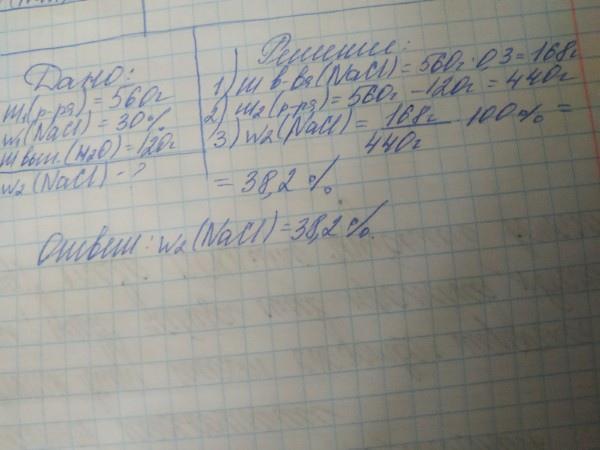 Дано:
m₁(р-ра) = 560г
w₁(NaCl) = 30%
m вып.(H₂O) = 120г
w₂(NaCl) - ?
Решение:
1) m в-ва(NaCl) = 560г · 0,3 = 168г
2) m₂(р-ра) = 560г - 120г = 440г
3) w₂(NaCl) = 168г / 440г · 100% =
= 38,2 %
Ответ: w₂(NaCl) = 38,2%.